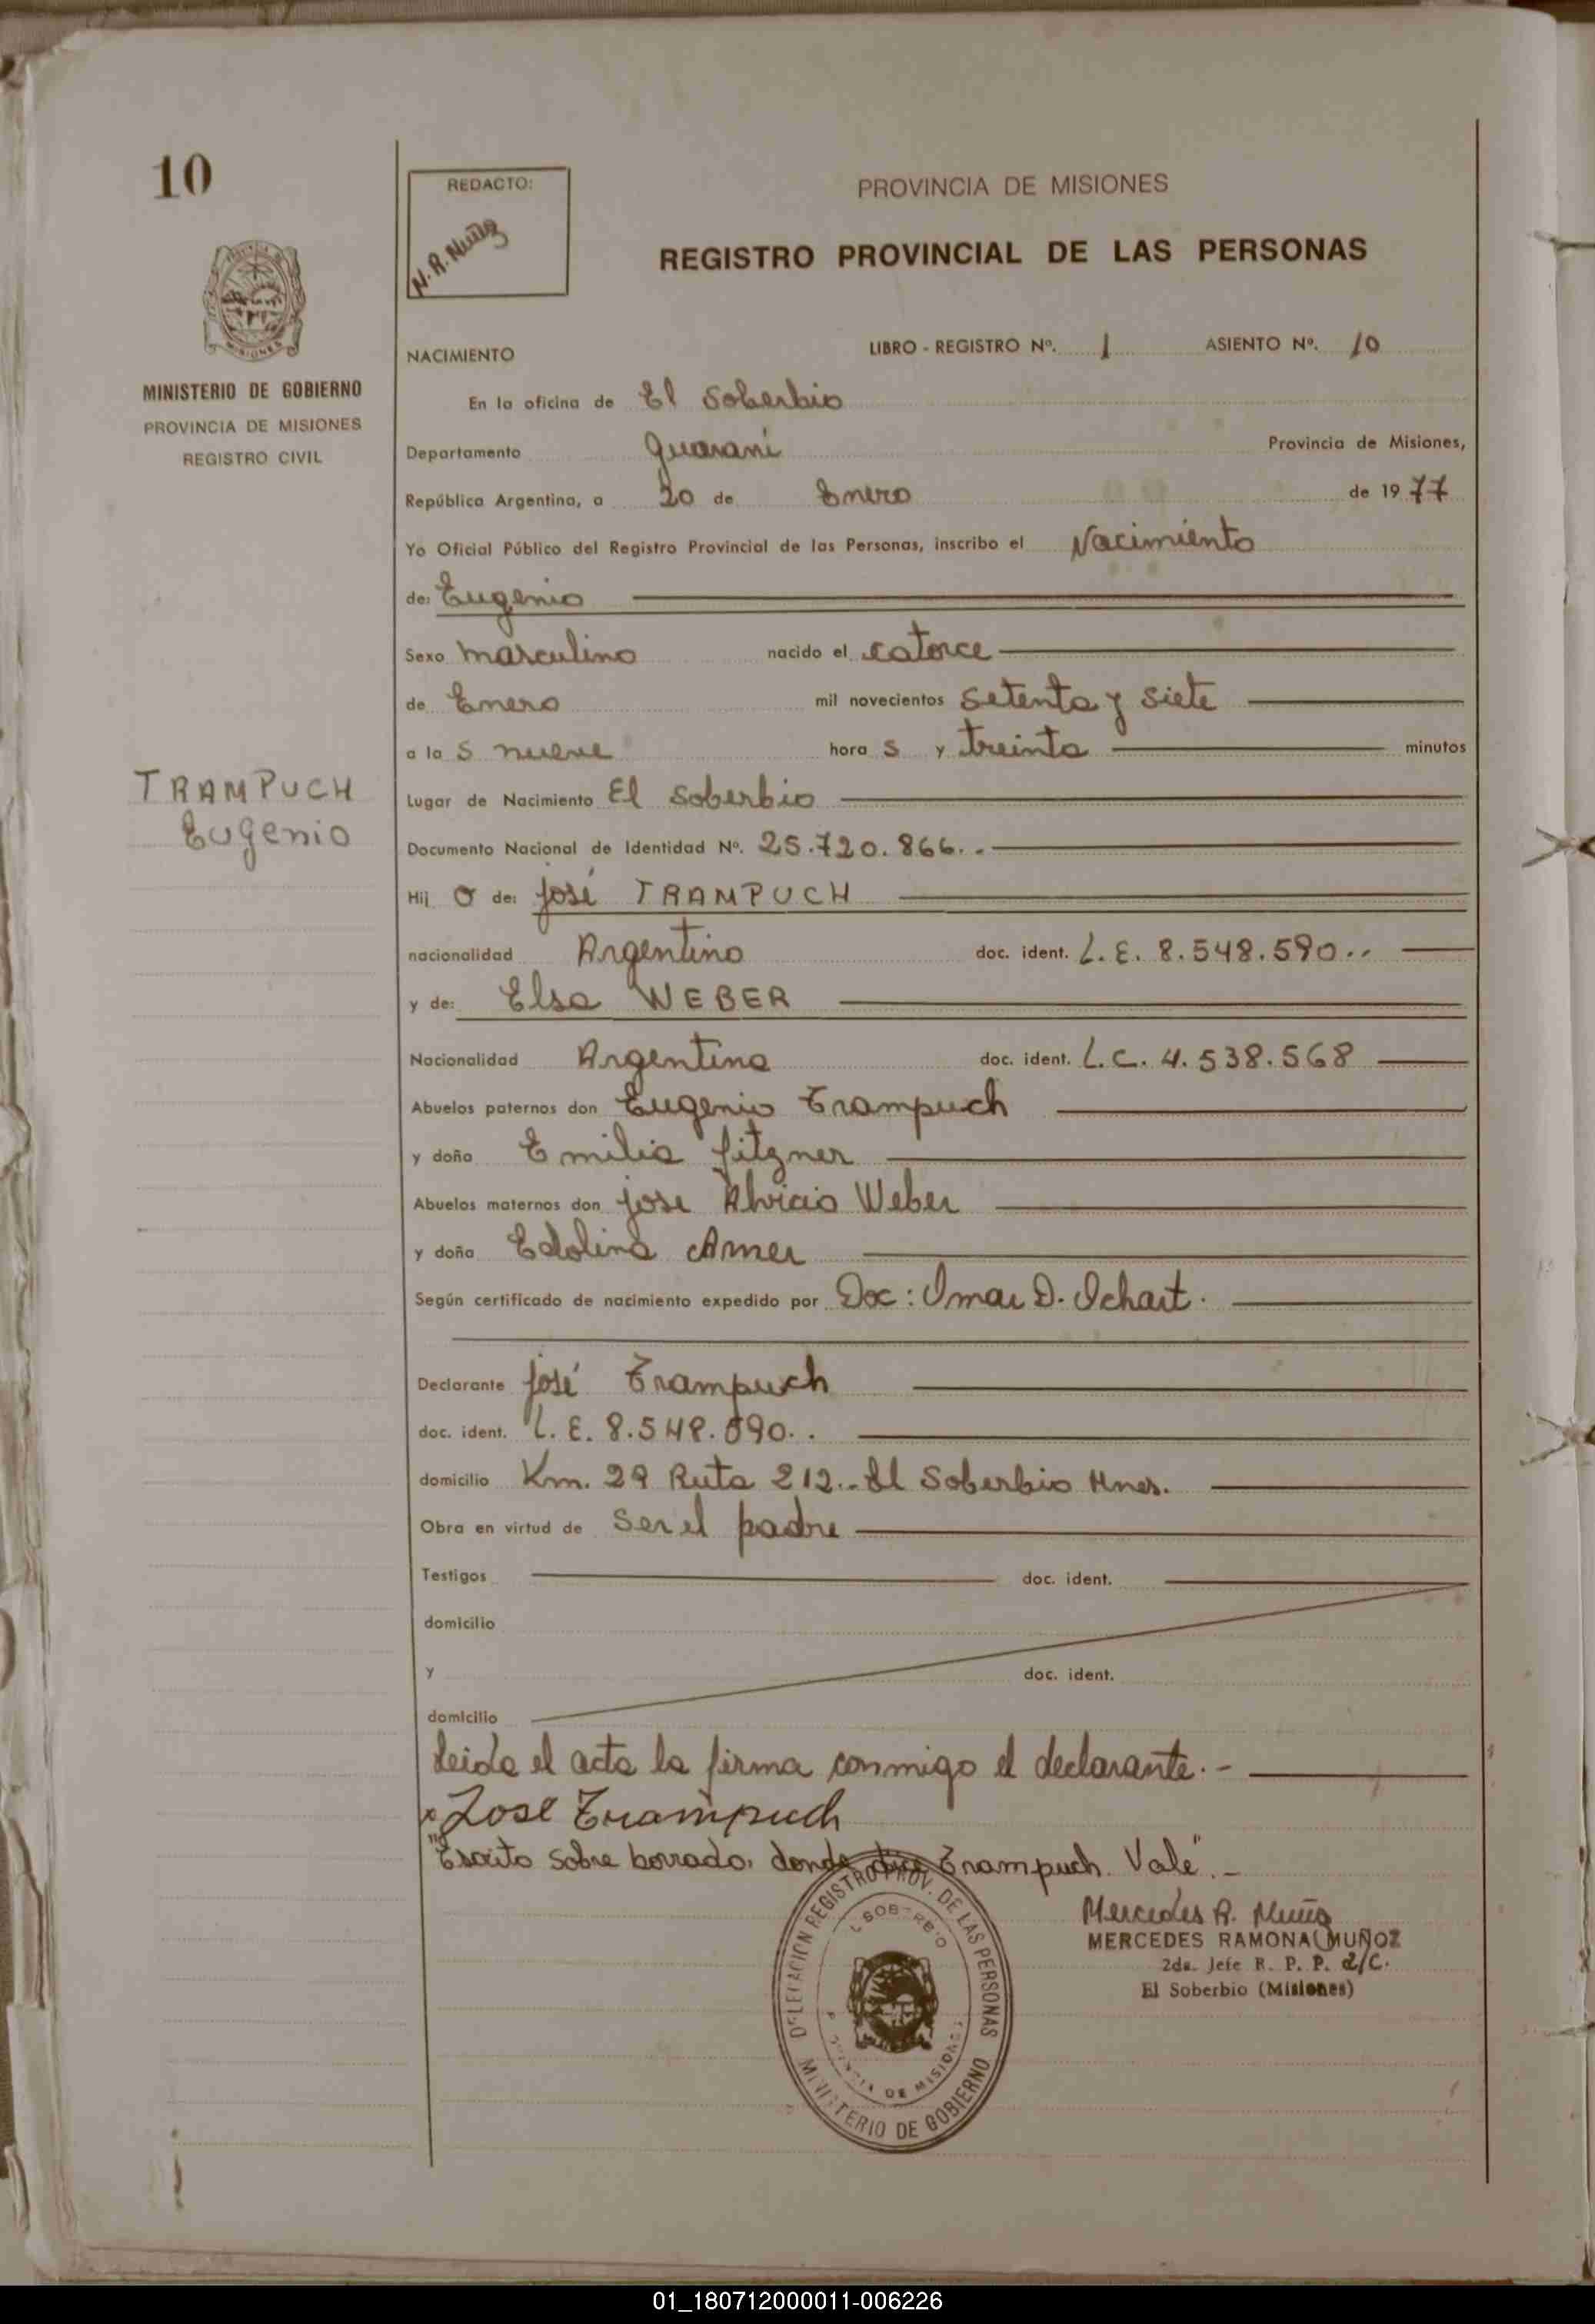 10
REDACTO:
PROVINCIA DE MISIONES
REGISTRO PROVINCIAL DE LAS PERSONAS
MISIONES
MINISTERIO DE GOBIERNO
PROVINCIA DE MISIONES
REGISTRO CIVIL
NACIMIENTO LIBRO - REGISTRO Nº. 1 ASIENTO Nº. 10
En la oficina de El Soberbio
Departamento Guaraní Provincia de Misiones,
República Argentina, a 20 de Enero de 1977
Yo Oficial Público del Registro Provincial de las Personas, inscribo el Nacimiento
de: Eugenio
Sexo masculino nacido el catorce
de Enero mil novecientos setenta y siete
a las nueve horas y treinta minutos
TRAMPUCH
Eugenio
Lugar de Nacimiento El Soberbio
Documento Nacional de Identidad Nº. 25.720.866.-
Hijo de: José TRAMPUCH
nacionalidad Argentino doc. ident. L.E. 8.548.590..
y de: Elsa WEBER
Nacionalidad Argentina doc. ident. L.C. 4.538.568
Abuelos paternos don Eugenio Trampuch
y doña Emilia fitzner
Abuelos maternos don jose Weber
y doña Edolina
Según certificado de nacimiento expedido por Doc: Omar D. Ochart.
Declarante José Trampuch
doc. ident. L.E. 8.548.590..
domicilio Km. 29 Ruta 212.- El Soberbio Mnes.
Obra en virtud de Ser el padre
Testigos doc. ident.
domicilio
y doc. ident.
domicilio
Leida el acta la firma conmigo el declarante.-
x Jose Trampuch
"Escrito sobre borrado, donde dice Trampuch. Vale".-
Mercedes R. Muñoz
MERCEDES RAMONA MUÑOZ
2da. Jefe R. P. P. a/c.
El Soberbio (Misiones)
DELEGACION REGISTRO PROV. DE LAS PERSONAS
EL SOBERBIO
PROVINCIA DE MISIONES
MINISTERIO DE GOBIERNO
01_180712000011-006226